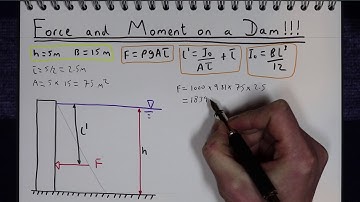 Force and Moment on a Dam!!!
h=5m B=15m
F=ρgAl̄
l'=I₀/Al̄ + l̄
I₀=BL³/12
l̄=5/2=2.5m
A=5×15=75m²
F=1000×9.81×75×2.5
=1839
l'
F
h